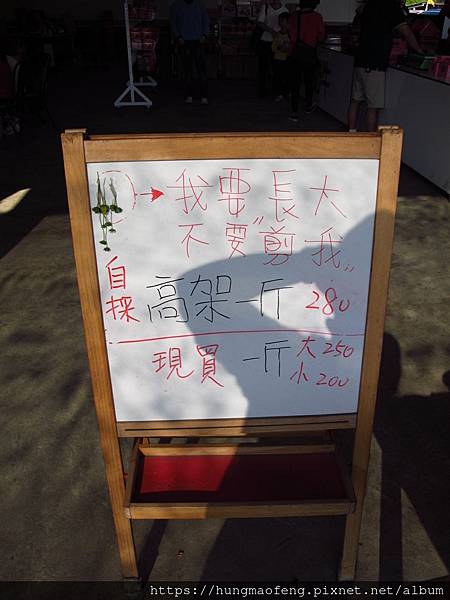 我要長大
不要"剪我"
自採 高架一斤 280
現買 一斤 大250
小200
https://hungmaofeng.pixnet.net/album